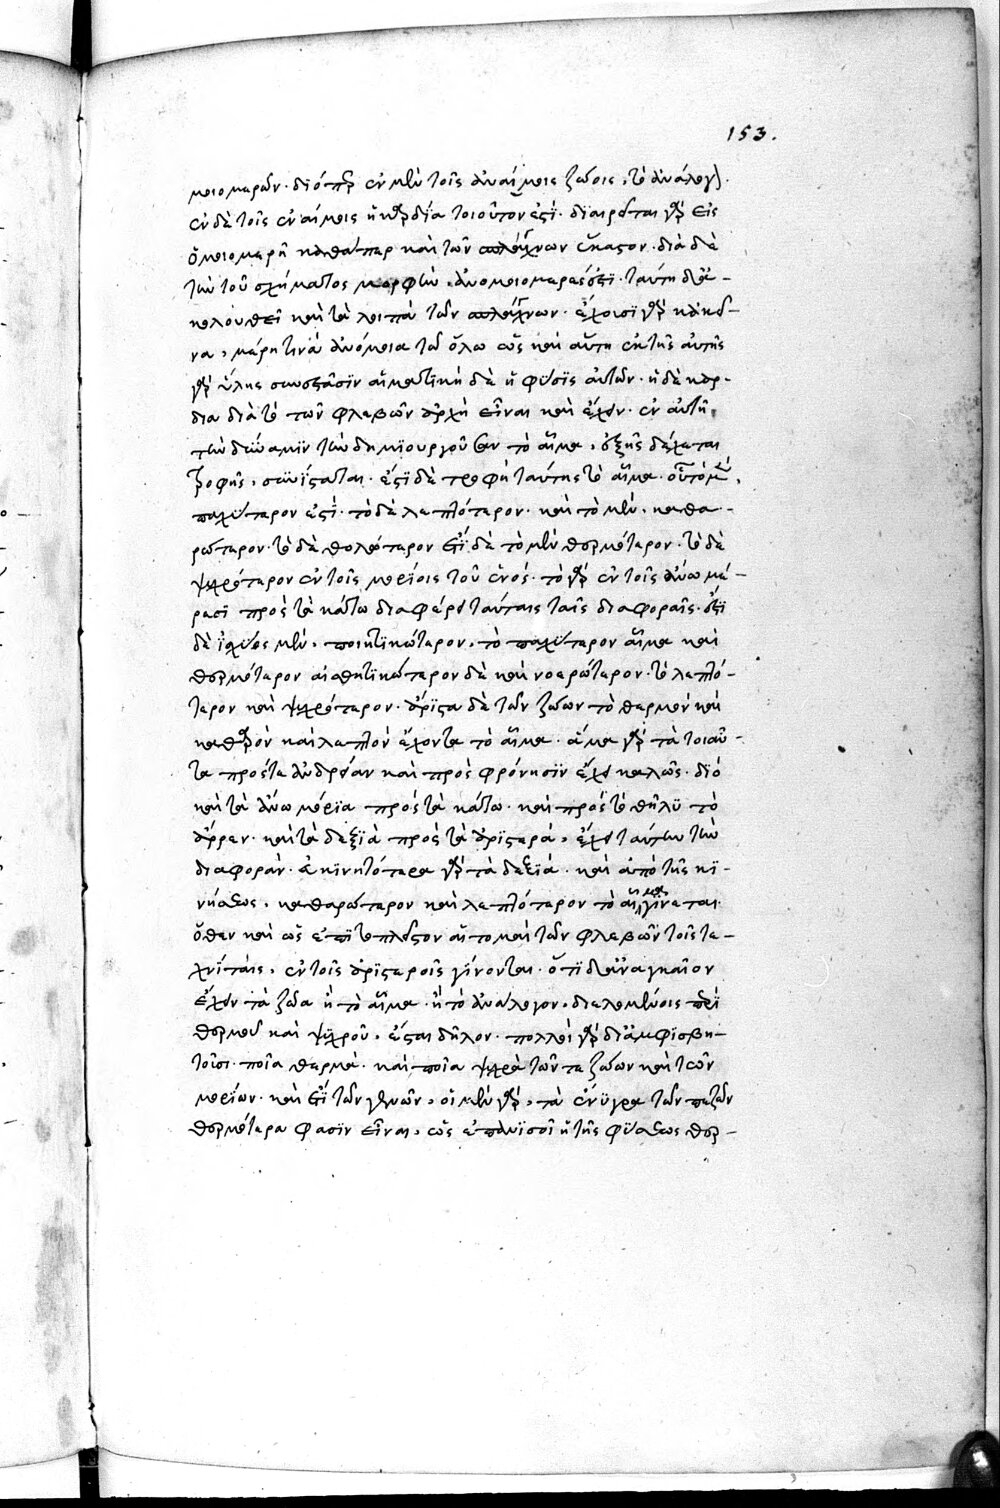 153.
μοιομερῶν· διόπερ ἐν μὲν τοῖς ἀναίμοις ζώοις, τὸ ἀνάλογον.
ἐν δὲ τοῖς ἐναίμοις ἡ καρδία τοιοῦτον ἐστί· διαιρεῖται γὰρ εἰς
ὁμοιομερῆ καθάπερ καὶ τῶν σπλάγχνων ἕκαστον· διὰ δὲ
τὴν τοῦ σχήματος μορφὴν, ἀνομοιομερές ἐστι· ταύτῃ δὲ ἀ-
κολουθεῖ καὶ τὰ λοιπὰ τῶν σπλάγχνων· ἔχουσι γὰρ κἀκεῖ-
να, μέρη τινὰ ἀνόμοια τῷ ὅλω ὡς καὶ αὕτη ἐκ τῆς αὐτῆς
γὰρ ὕλης συνεστᾶσιν αἱματικὴ δὲ ἡ φύσις αὐτῶν· ἡ δὲ καρ-
δία διὰ τὸ τῶν φλεβῶν ἀρχὴ εἶναι καὶ ἔχειν· ἐν αὐτῇ
τὴν δύναμιν τὴν δημιουργοῦσαν τὸ αἷμα, ἐξ ἧς δέχεται
τροφῆς, συνίσταται· ἔστι δὲ τροφὴ ταύτης τὸ αἷμα· οὗ τὸ μὲν,
παχύτερον ἐστί· τὸ δὲ λεπτότερον· καὶ τὸ μὲν, καθα-
ρώτερον· τὸ δὲ θολερότερον ἔτι δὲ τὸ μὲν θερμότερον· τὸ δὲ
ψυχρότερον ἐν τοῖς μορίοις τοῦ ἑνός· τὸ γὰρ ἐν τοῖς ἄνω μέ-
ρεσι πρὸς τὰ κάτω διαφέρει ταύταις ταῖς διαφοραῖς· ἔστι
δὲ ἰσχύος μὲν, ποιητικώτερον, τὸ παχύτερον αἷμα καὶ
θερμότερον αἰσθητικώτερον δὲ καὶ νοερώτερον· τὸ λεπτό-
τερον καὶ ψυχρότερον· ἄριστα δὲ τῶν ζώων τὸ θερμὸν καὶ
καθαρὸν καὶ λεπτὸν ἔχοντα τὸ αἷμα· ἅμα γὰρ τὰ τοιαῦ-
τα πρός τε ἀνδρείαν καὶ πρὸς φρόνησιν ἔχει καλῶς· διό
καὶ τὰ ἄνω μόρια πρὸς τὰ κάτω· καὶ πρὸς τὸ θῆλυ τὸ
ἄρρεν· καὶ τὰ δεξιὰ πρὸς τὰ ἀριστερά, ἔχει ταύτην τὴν
διαφοράν· εὐκινητότερα γὰρ τὰ δεξιά· καὶ ἀπὸ τῆς κι-
νήσεως, καθαρώτερον καὶ λεπτότερον τὸ αἷμα γίνεται·
ὅθεν καὶ ὡς ἐπὶ τὸ πλεῖστον αἱ τομαὶ τῶν φλεβῶν τοῖς τε-
χνίταις, ἐν τοῖς ἀριστεροῖς γίνονται· ὅτι δὲ ἀναγκαῖον
ἔχειν τὰ ζῶα ἢ τὸ αἷμα· ἢ τὸ ἀνάλογον, διελομένοις περὶ
θερμοῦ καὶ ψυχροῦ, ἔσται δῆλον· πολλοὶ γὰρ διαμφισβη-
τοῦσι· ποῖα θερμὰ· καὶ ποῖα ψυχρὰ τῶν τε ζώων καὶ τῶν
μορίων· καὶ ἔτι τῶν γενῶν, οἱ μὲν γὰρ, τὰ ἔνυγρα τῶν πεζῶν
θερμότερα φασὶν εἶναι, ὡς ἐπανισοῖ ἡ τῆς φύσεως θερ-